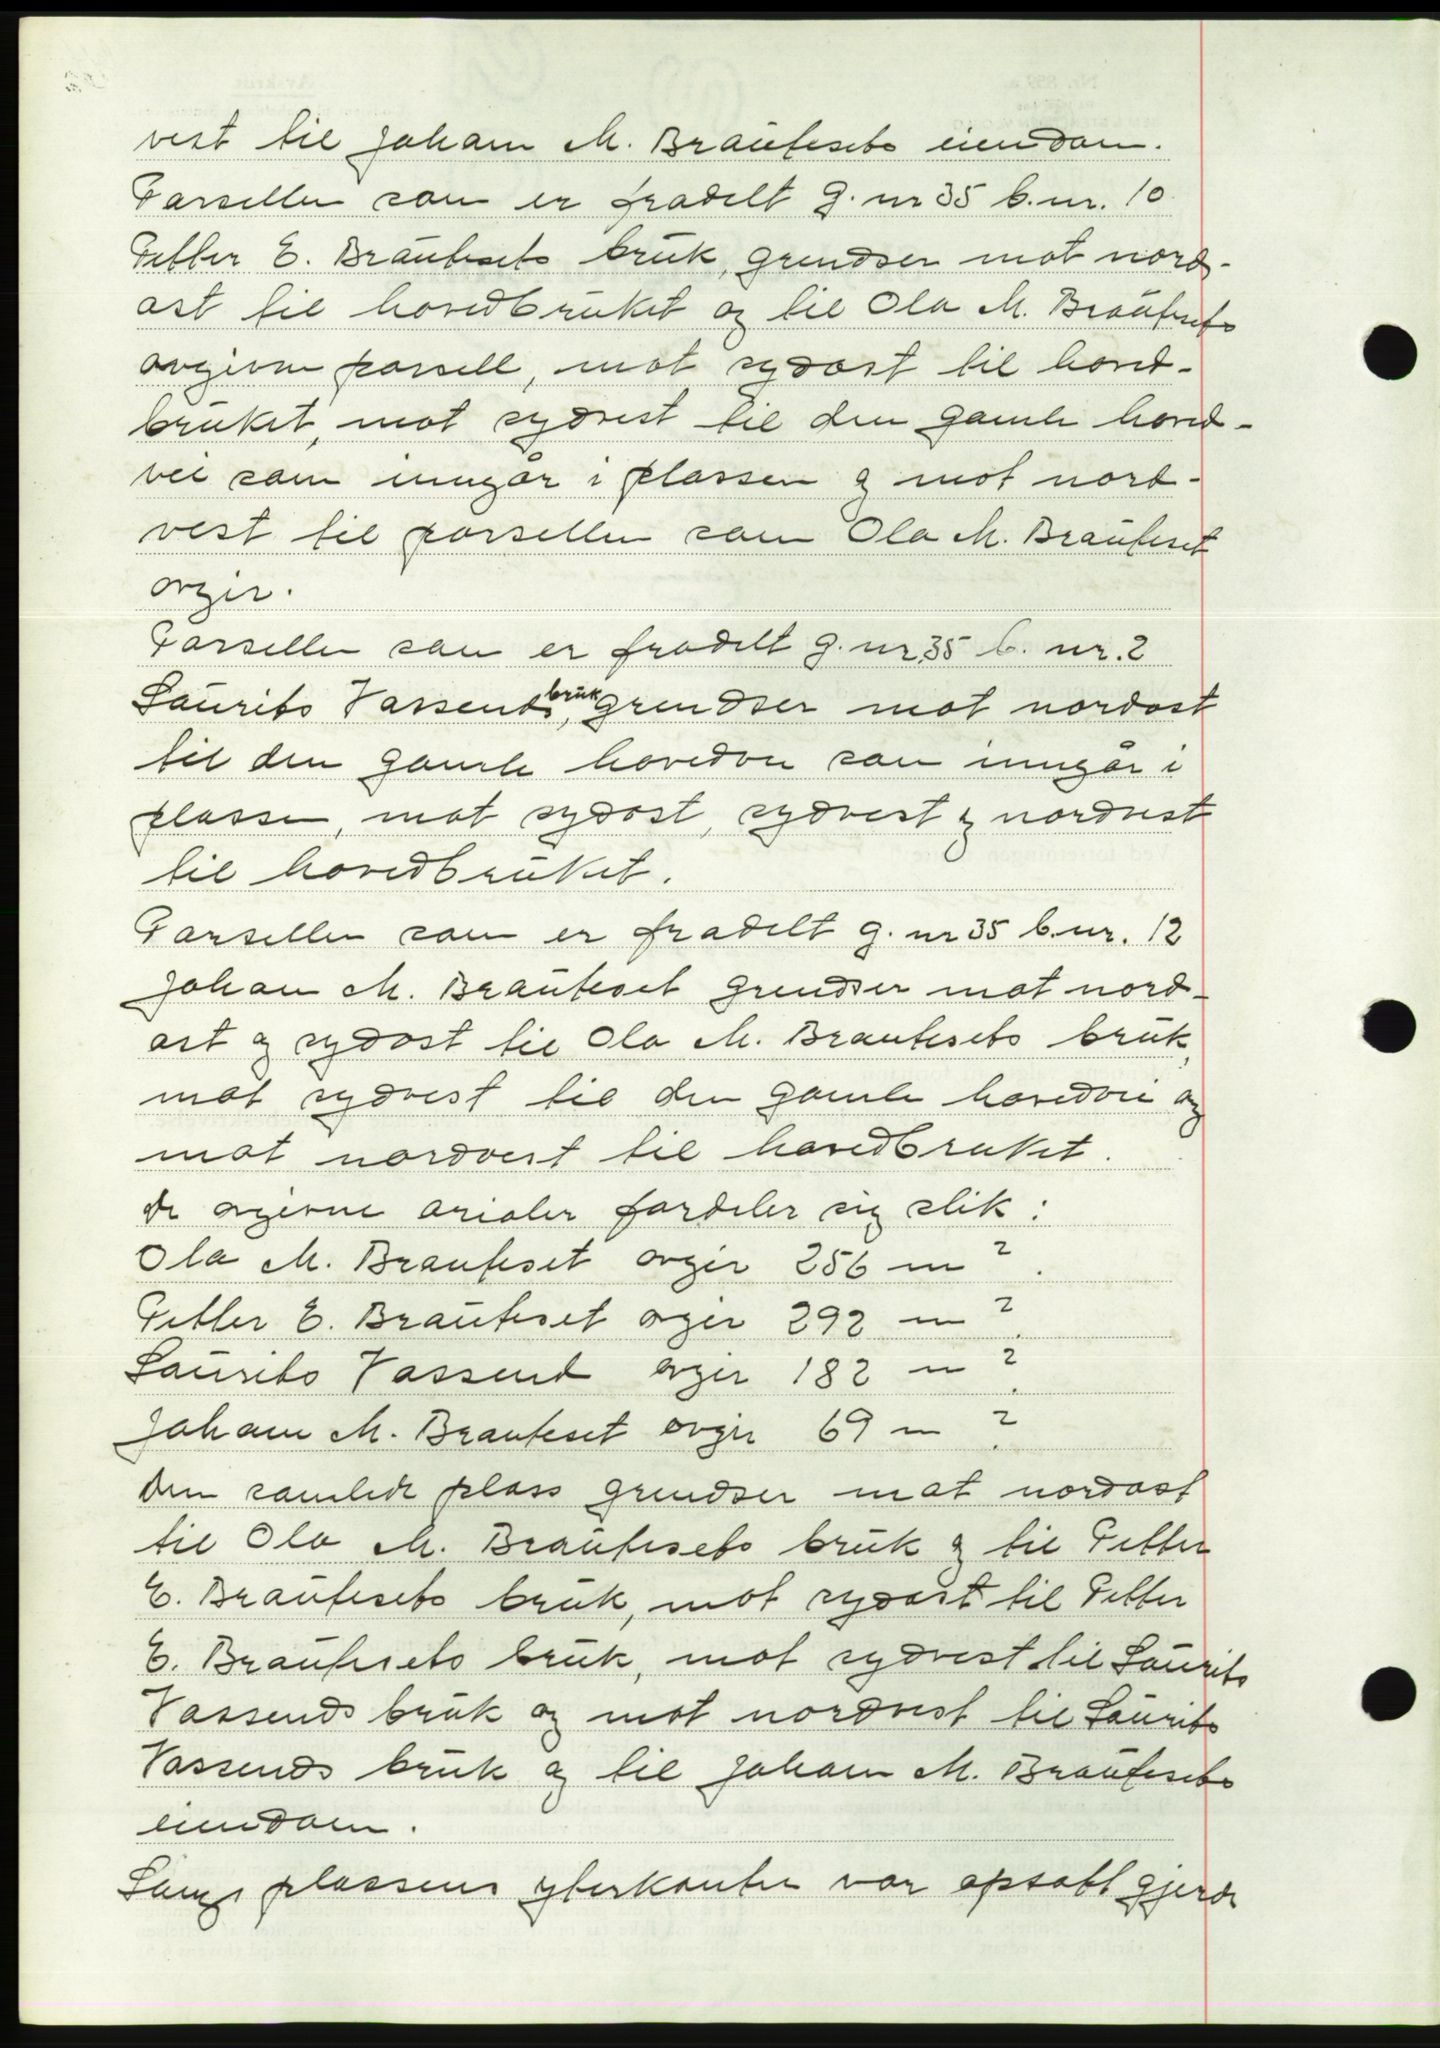 vest til Johan M. Brautesets eiendom.
Parsellen som er fradelt g. nr 35 b. nr. 10
Petter E. Brautesets bruk, grendser mot nord-
ost til hovedbruket og til Ola M. Brautesets
avgivne parsell, mot sydost til hoved-
bruket, mot sydvest til den gamle hoved-
vei som inngår i plassen og mot nord-
vest til parsellen som Ola M. Brauteset
avgir.
Parsellen som er fradelt g. nr. 35 b. nr. 2
Laurits Vassends bruk, grendser mot nordost
til den gamle hovedvei som inngår i
plassen, mot sydost, sydvest og nordvest
til hovedbruket.
Parsellen som er fradelt g. nr 35 b. nr. 12
Johan M. Brauteset grendser mot nord-
ost og sydost til Ola M. Brautesets bruk,
mot sydvest til den gamle hovedvei og
mot nordvest til hovedbruket.
De avgivne arialer fordeler sig slik:
Ola M. Brauteset avgir 256 m².
Petter E. Brauteset avgir 292 m².
Laurits Vassend avgir 182 m².
Johan M. Brauteset avgir 69 m².
Den samlede plass grendser mot nordost
til Ola M. Brautesets bruk og til Petter
E. Brautesets bruk, mot sydost til Petter
E. Brautesets bruk, mot sydvest til Laurits
Vassends bruk og mot nordvest til Laurits
Vassends bruk og til Johan M. Brautesets
eiendom.
Langs plassens yterkanter var opsatt gjerde